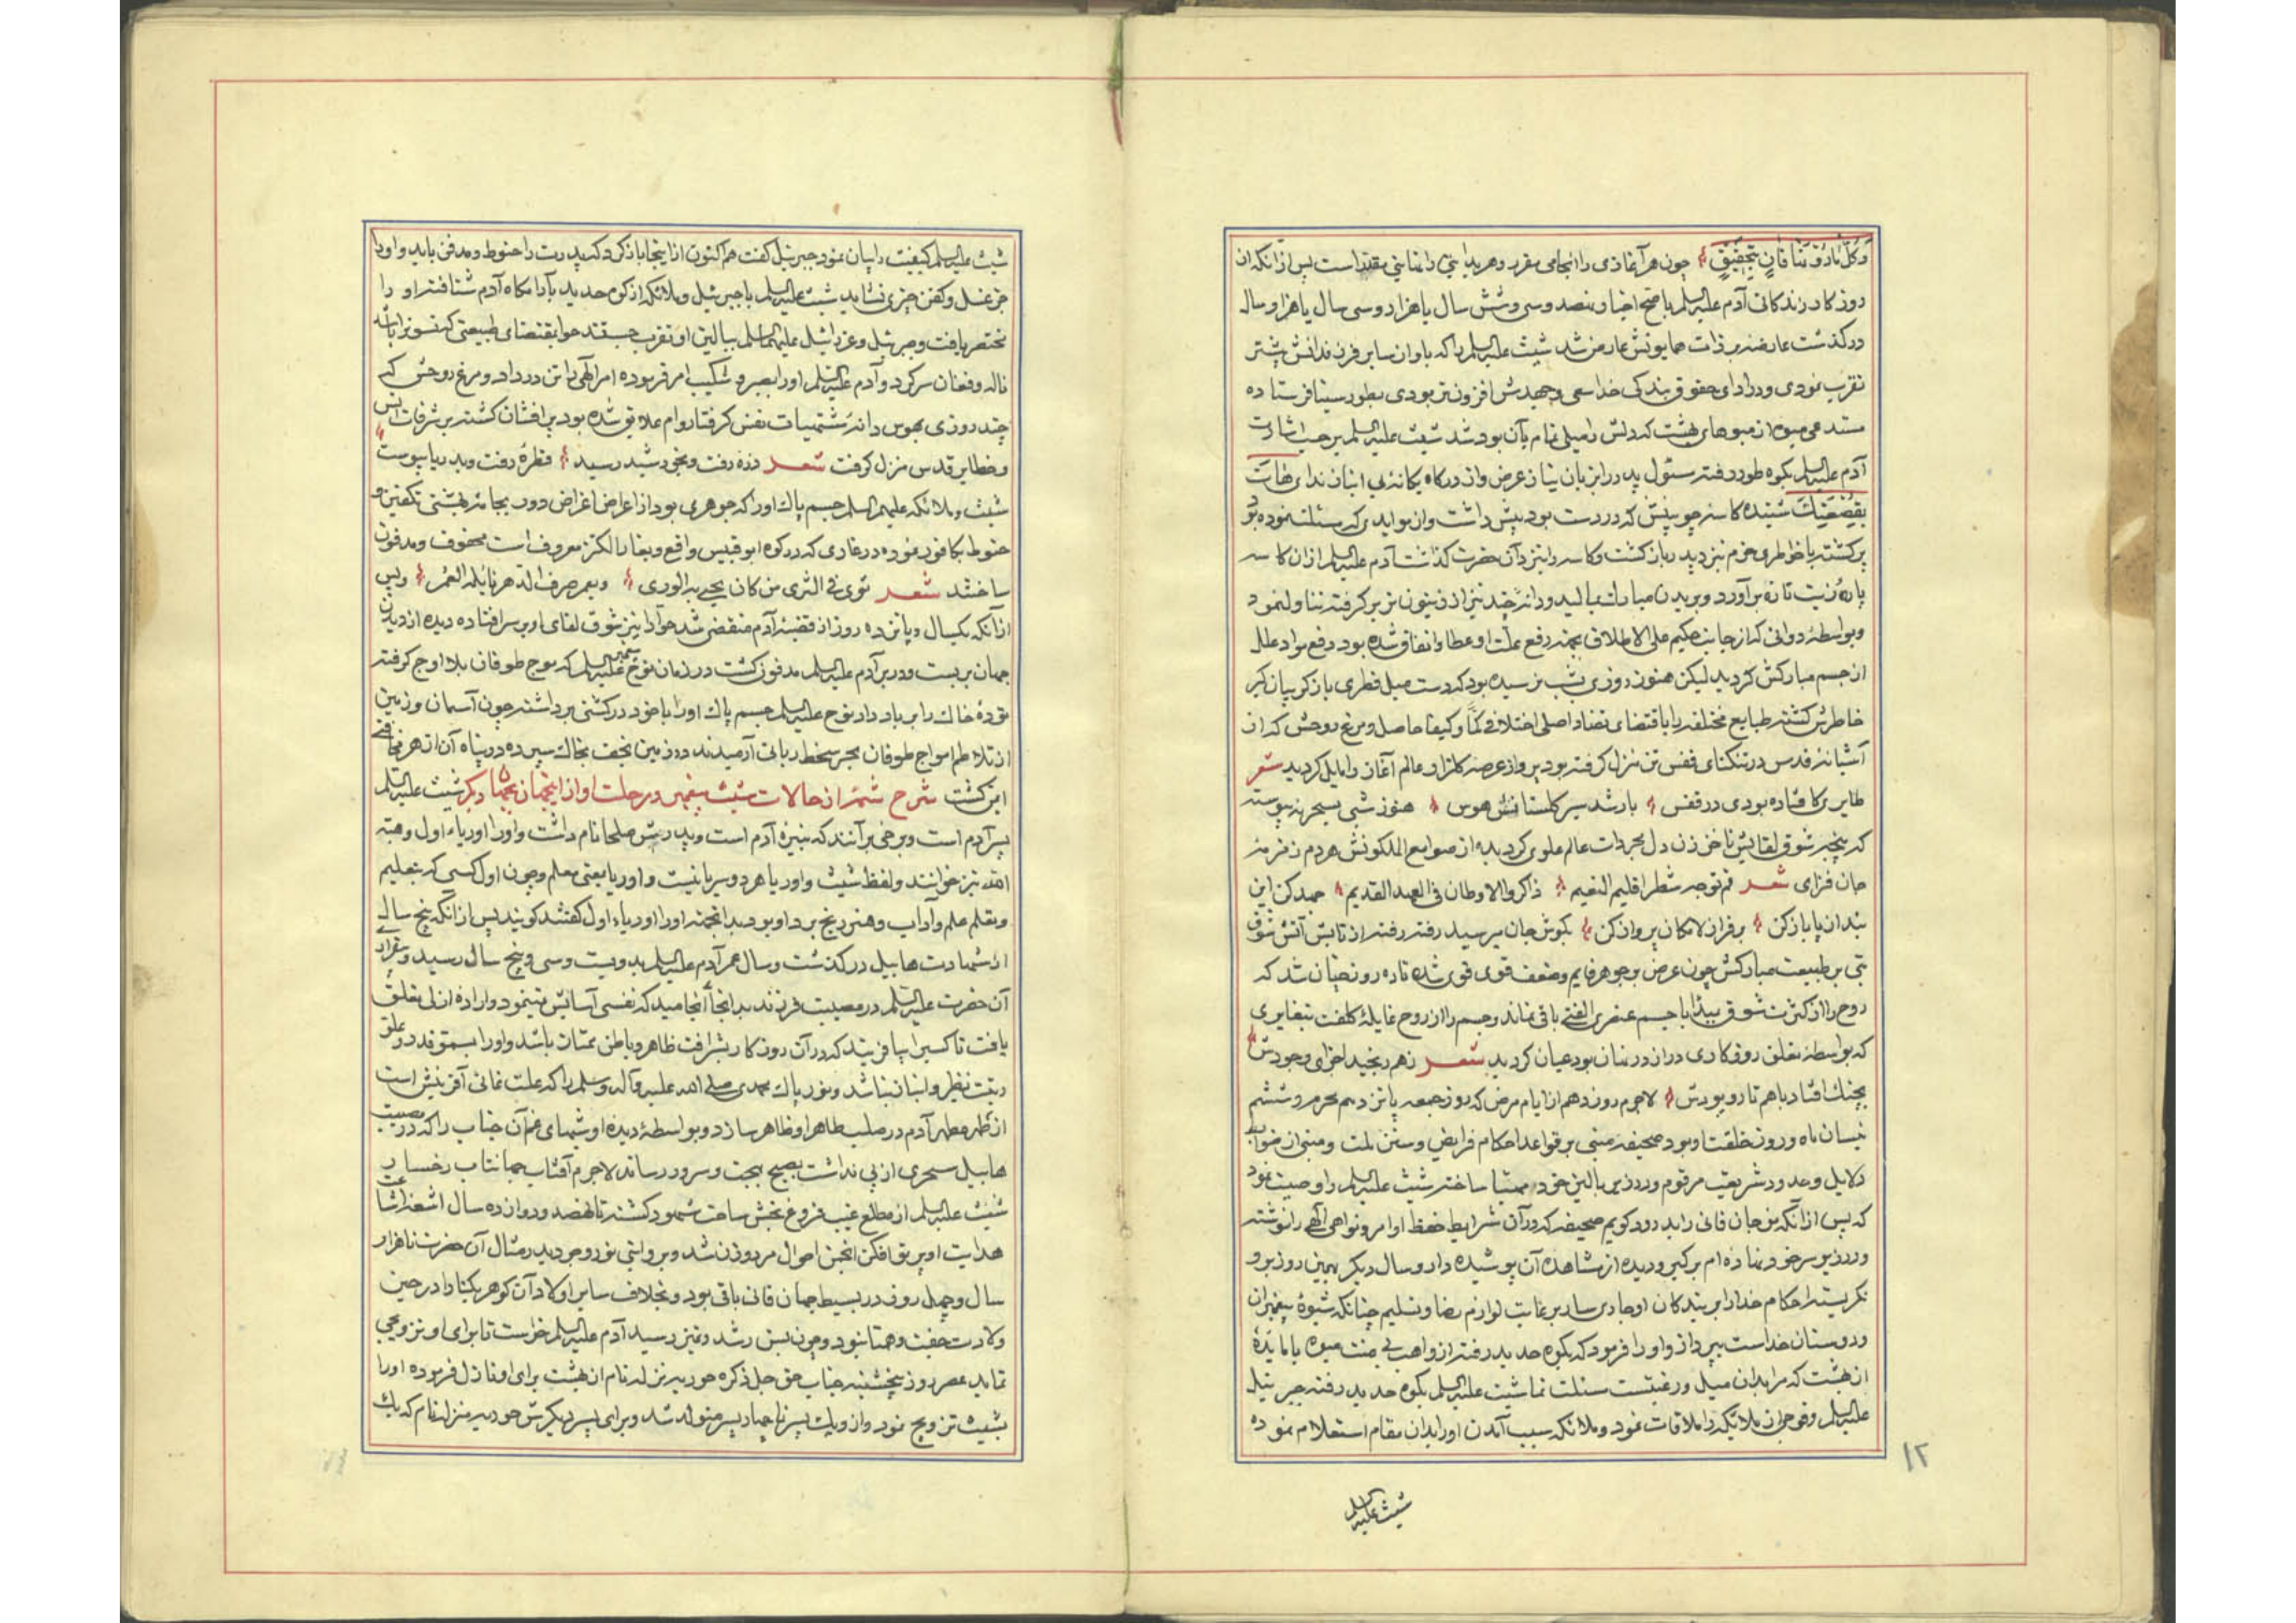 وَكُلُّ نَارٍ وَقَّتَنَا فَانٍ بِتَحْقِيقٍ چون هر آغازی را انجامی مقرر و هر بدایتی را نهایتی مقدر است پس از آنکه از
روزکار زندکانی آدم علیه السلم باصح اخبار نهصد و سی و شش سال یا هزار و سی سال یا هزار ساله
درکذشت عارضه بر ذات همایونش عارض شد شیث علیه السلم را که باو از سایر فرزندانش پیشتر
تقرب نمودی و در ادای حقوق بندکی خدا سعی و جهدش افزون تر بودی بطور سینا فرستاده
مستدعی میوه از میوهای بهشت که دلش را میلی تمام بآن بود شد شیث علیه السلم بر حسب اشارت
آدم علیه السلم بکوه طور رفته مسئول پدر را بزبان نیاز عرض و از درکاه یکانه بی انباز ندای هَاتَ
بِقَصْعَتِكَ شنیده کاسه چوبینش که در دست بود پیش داشت و از موایدی که مسئلت نموده بود
پر کشته با خاطری خرم نزد پدر باز کشت و کاسه را نزد آن حضرت کذاشت آدم علیه السلم از آن کاسه
پاره زیت تازه بر آورد و بر بدن مبارک بمالید و دانه چند نیز از زیتون تر بر کرفته تناول نمود
و بواسطه دوائی که از جانب حکیم علی الاطلاق بجهة رفع علت او عطا و انفاق شده بود دفع مواد علل
از جسم مبارکش کردید لیکن هنوز روزی بشب نرسیده بود که دست میل فطری باز کریبان کیر
خاطرش کشته طبایع مختلفه را باقتضای تضاد اصلی اختلاف کمّاً و کیفا حاصل و مرغ روحش که از
آشیانه قدس در تنکنای قفس تن منزل کرفته بود پرواز عرصه کلزار عالم آغاز را مایل کردید شعر
طایری کافتاده بودی در قفس باز شد سیر کلستانش هوس هنوز شبی بسحر نه پیوسته
که پنجه شوق لقایش ناخن زن دل مجردات عالم علوی کردیده از صوامع الملکوتش هر دم زمزمه
جان فزای شعر قم توجه شطر اقلیم النعیم ذاکر والاوطان فی العهد القدیم جهد کن این
بند از پا باز کن بر فراز لامکان پرواز کن بکوش جان میرسید رفته رفته از تابش آتش شوق
تبی بر طبیعت مبارکش چون عرض بر جوهر قایم و ضعف قوی قوی شده تا ده روز چنان شد که
روح را از کثرت شوق بمبدا با جسم عنصری الفتی باقی نماند و جسم را از روح غایله کلفت بتغایری
که بواسطه تعلق روزکاری دراز در نهان بود عیان کردید شعر ز هم رنجید اجزای وجودش
بجنک افتاد با هم تار و پودش لاجرم روز دهم از ایام مرض که روز جمعه پانزدهم محرم و ششم
نیسان ماه و روز خلقت او بود صحیفه مبنی بر قواعد احکام فرایض و سنن ملت و مبنی از
دلایل و حدود شریعت مرقوم و در زیر بالین خود مهیا ساخته شیث علیه السلم را وصیت نمود
که پس از آنکه من جان فانی را بدرود کویم صحیفه که در آن شرایط حفظ اوامر و نواهی الهی را نوشته
و در زیر سر خود نهاده ام بر کیر و دیده از مشاهده آن پوشیده دار و سال دیکر بهمین روز برو
نکریسته احکام خدا را بر بندکان او جاری ساز بر عایت لوازم رضا و تسلیم چنانکه شیوه پیغمبران
و دوستان خداست بپرداز و او را فرمود که بکوه حدید رفته از واهب بی منت میوه یا مایدهٔ
از بهشت که مرا بدان میل و رغبتست مسئلت نما شیث علیه السلم بکوه حدید رفته جبرئیل
علیه السلم و فوجی از ملایکه را ملاقات نمود و ملائکه سبب آمدن او را بدان مقام استعلام نموده
۱۲
شیث علیه السلم
شیث علیه السلم کیفیت را بیان نمود جبرئیل کفت هم اکنون از اینجا باز کرد که پدرت را حنوط و مدفن باید و او را
جز غسل و کفن چیزی نشاید شیث علیه السلم با جبرئیل و ملائکه از کوه حدید بآرامکاه آدم شتافته او را
محتضر یافت و جبرئیل و عزرائیل علیهما السلم ببالین او تقرب جستند حوا بمقتضای طبیعتی که نسوانراباشد
ناله و فغان سر کرد و آدم علیه السلم او را بصبر و شکیب امر فرموده امر الهی را تن در داد و مرغ روحش که
چند روزی بهوس دانه مشتهیات نفس کرفتار دام علایق شده بود پر افشان کشته بر شرفات انس
و حظایر قدس منزل کرفت شعر ذره رفت و بخورشید رسید قطرهٔ رفت و بدریا پیوست
شیث و ملائکه علیهم السلم جسم پاک او را که جوهری بود از اعراض اغراض دور بجامه بهشتی تکفین و
حنوط بکافور نموده در غاری که در کوه ابو قبیس واقع و بغار الکنز معروف است محفوف و مدفون
ساختند شعر ثوی فی الثری من کان یحیی به الوری و بعمر صرف الدهر نایله العمر و پس
از آنکه یکسال و پانزده روز از قضیه آدم منقضی شد حوا را نیز شوق لقای او بر سر افتاده دیده از دیدن
جهان بر بست و در بر آدم علیه السلم مدفون کشت در زمان نوح پیغمبر علیه السلم که موج طوفان بلا اوج کرفته
توده خاک را بر باد داد نوح علیه السلم جسم پاک او را با خود در کشتی بر داشته چون آسمان و زمین
از تلاطم امواج طوفان بحر سخط ربانی آرمیدند در زمین نجف بخاک سپرده در پناه آن از هر مخافتی
ایمن کشت شرح شمهٔ از حالات شیث پیغمبر و رحلت او از اینجهان بجهان دیکر شیث علیه السلم
پسر آدم است و برخی بر آنند که نبیرهٔ آدم است و پدرش صلحا نام داشت و او را اوریاء اول و هبة
الله نیز خوانند و لفظ شیث و اوریا هر دو سریانیست و اوریا بمعنی معلم و چون اول کسی که بتعلیم
و تعلم علم و آداب و هنر رنج برد او بود بدانجهته او را اوریاء اول کفتند کویند پس از آنکه پنج سال
از شهادت هابیل در کذشت و سال عمر آدم علیه السلم بدویست و سی و پنج سال رسید و
آن حضرت علیه السلم در مصیبت فرزند بدانجا انجامید که نفسی آسایش نمینمود و اراده ازلی تعلق
یافت تا کسیرا بیافریند که در آن روزکار بشرافت ظاهر و باطن ممتاز باشد و او را بسمو قدر و علو
رتبت نظیر و انباز نباشد و نور پاک محمدی صلی الله علیه و آله و سلم را که علت غائی آفرینش است
از ظهر مطهر آدم در صلب طاهر او ظاهر سازد و بواسطه دیده او شبهای غم آن جناب را که در مصیبت
هابیل سحری از پی نداشت بصبح بهجت و سرور رساند لاجرم آفتاب جهانتاب رخسار
شیث علیه السلم از مطلع غیب فروغ بخش ساحت شهود کشته تا نهصد و دوازده سال اشعه اشاعت
هدایت او پرتو افکن انجمن احوال مرد و زن شد و بروایتی نور وجود بدر مثال آن حضرت تا هزار
سال و چهل روز در بسیط جهان فانی باقی بود و بخلاف سایر اولاد آن کوهر یکتا را در حین
ولادت جفت و همتا نبود و چون بسن رشد و تمیز رسید آدم علیه السلم خواست تا برای او تزویجی
نماید عصر روز پنجشنبه جناب حق جل ذکره حوریه نزله نام از بهشت برای او نازل فرموده او را
بشیث تزویج نمود و از و یک پسر متولد شد و برای پسر دیکرش حوریه منزله نام که یک